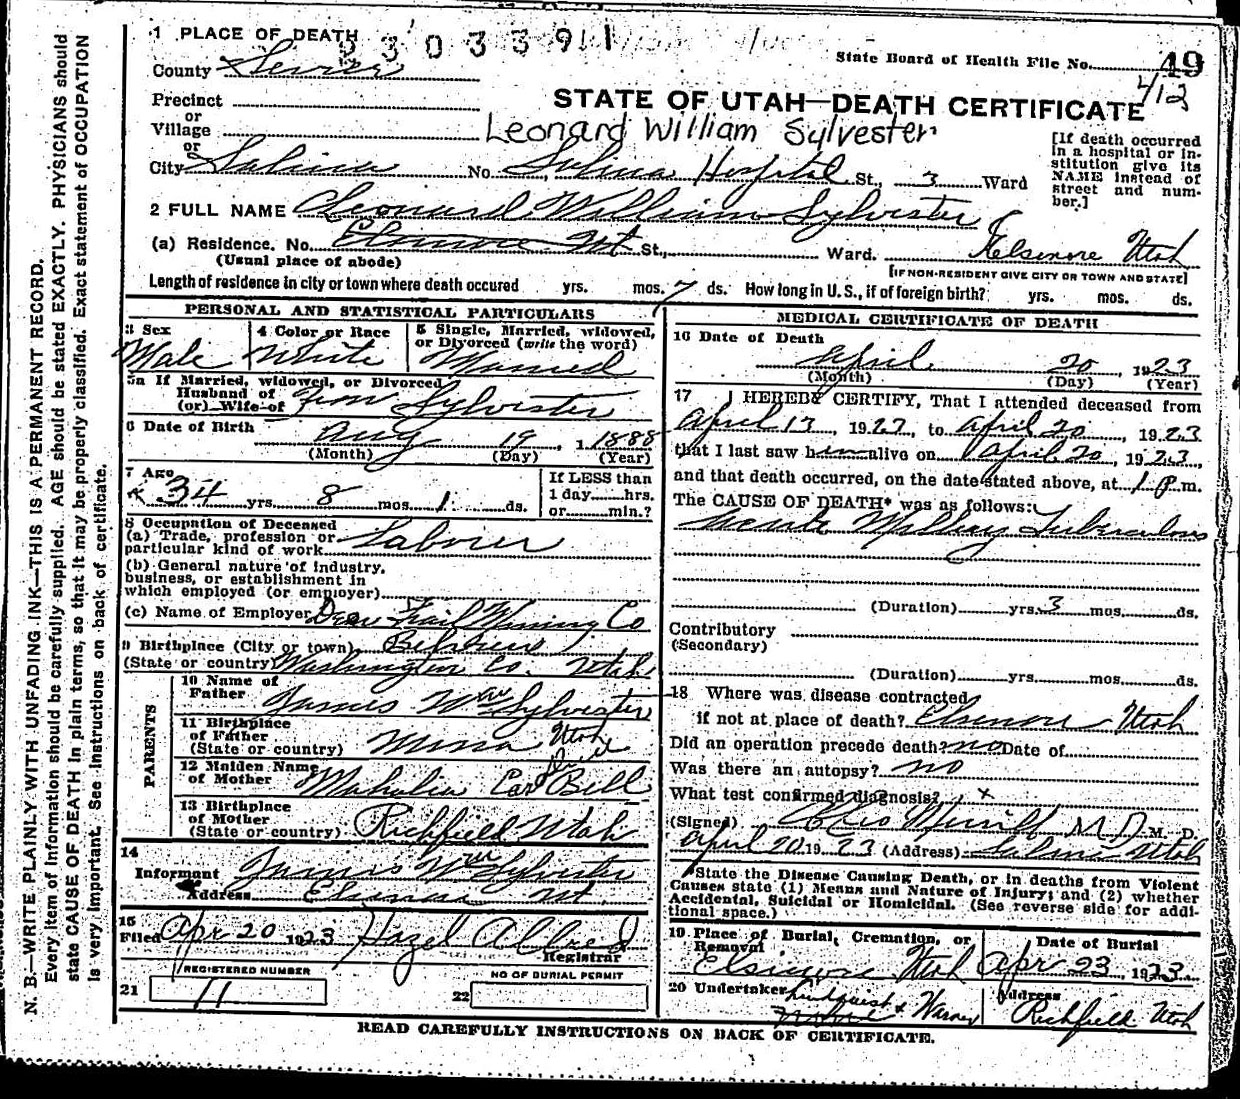 1 PLACE OF DEATH
2303391
State Board of Health File No. 49
412
County Sevier
STATE OF UTAH—DEATH CERTIFICATE
Precinct
or
Village
Leonard William Sylvester
or
City Salina No. Salina Hospital St., 3 Ward
[If death occurred in a hospital or institution give its NAME instead of street and number.]
2 FULL NAME Leonard William Sylvester
(a) Residence. No. Elsinore Ut St., Ward. Elsinore Utah
(Usual place of abode) [IF NON-RESIDENT GIVE CITY OR TOWN AND STATE]
Length of residence in city or town where death occured yrs. mos. 7 ds. How long in U. S., if of foreign birth? yrs. mos. ds.
PERSONAL AND STATISTICAL PARTICULARS
3 Sex
Male
4 Color or Race
White
5 Single, Married, widowed, or Divorced (write the word)
Married
5a If Married, widowed, or Divorced
Husband of
(or) Wife of Sylvester
6 Date of Birth Aug 19, 1 1888
(Month) (Day) (Year)
7 Age
34 yrs. 8 mos. 1 ds.
If LESS than
1 day hrs.
or min.?
8 Occupation of Deceased
(a) Trade, profession or
particular kind of work Laborer
(b) General nature of industry,
business, or establishment in
which employed (or employer)
(c) Name of Employer Deer Trail Mining Co
9 Birthplace (City or town) Bellevue
(State or country) Washington Co. Utah
PARENTS
10 Name of
Father James Wm Sylvester
11 Birthplace
of Father
(State or country) Utah
12 Maiden Name
of Mother Mahalia Bell
13 Birthplace
of Mother
(State or country) Richfield Utah
14
Informant James Wm Sylvester
Address Elsinore Ut.
15
Filed Apr 20 1923 Hazel Allred
Registrar
REGISTERED NUMBER
21 11
NO OF BURIAL PERMIT
22
MEDICAL CERTIFICATE OF DEATH
16 Date of Death
April 20, 1923
(Month) (Day) (Year)
17 I HEREBY CERTIFY, That I attended deceased from
April 13, 1923, to April 20, 1923
that I last saw him alive on April 20, 1923,
and that death occurred, on the date stated above, at 1 P.m.
The CAUSE OF DEATH* was as follows:
Acute Miliary Tuberculosis
(Duration) yrs. 3 mos. ds.
Contributory
(Secondary)
(Duration) yrs. mos. ds.
18 Where was disease contracted
if not at place of death? Elsinore Utah
Did an operation precede death? no Date of
Was there an autopsy? no
What test confirmed diagnosis?
(Signed) Merrill M D M. D.
April 20 1923 (Address) Salina Utah
*State the Disease Causing Death, or in deaths from Violent
Causes state (1) Means and Nature of Injury; and (2) whether
Accidental, Suicidal or Homicidal. (See reverse side for additional space.)
19 Place of Burial, Cremation, or
Removal
Elsinore Utah
Date of Burial
Apr 23, 1923
20 Undertaker
Lindquist & Warner
Address
Richfield Utah
READ CAREFULLY INSTRUCTIONS ON BACK OF CERTIFICATE.
N. B.—WRITE PLAINLY WITH UNFADING INK—THIS IS A PERMANENT RECORD.
Every item of information should be carefully supplied. AGE should be stated EXACTLY. PHYSICIANS should
state CAUSE OF DEATH in plain terms, so that it may be properly classified. Exact statement of OCCUPATION
is very important. See instructions on back of certificate.